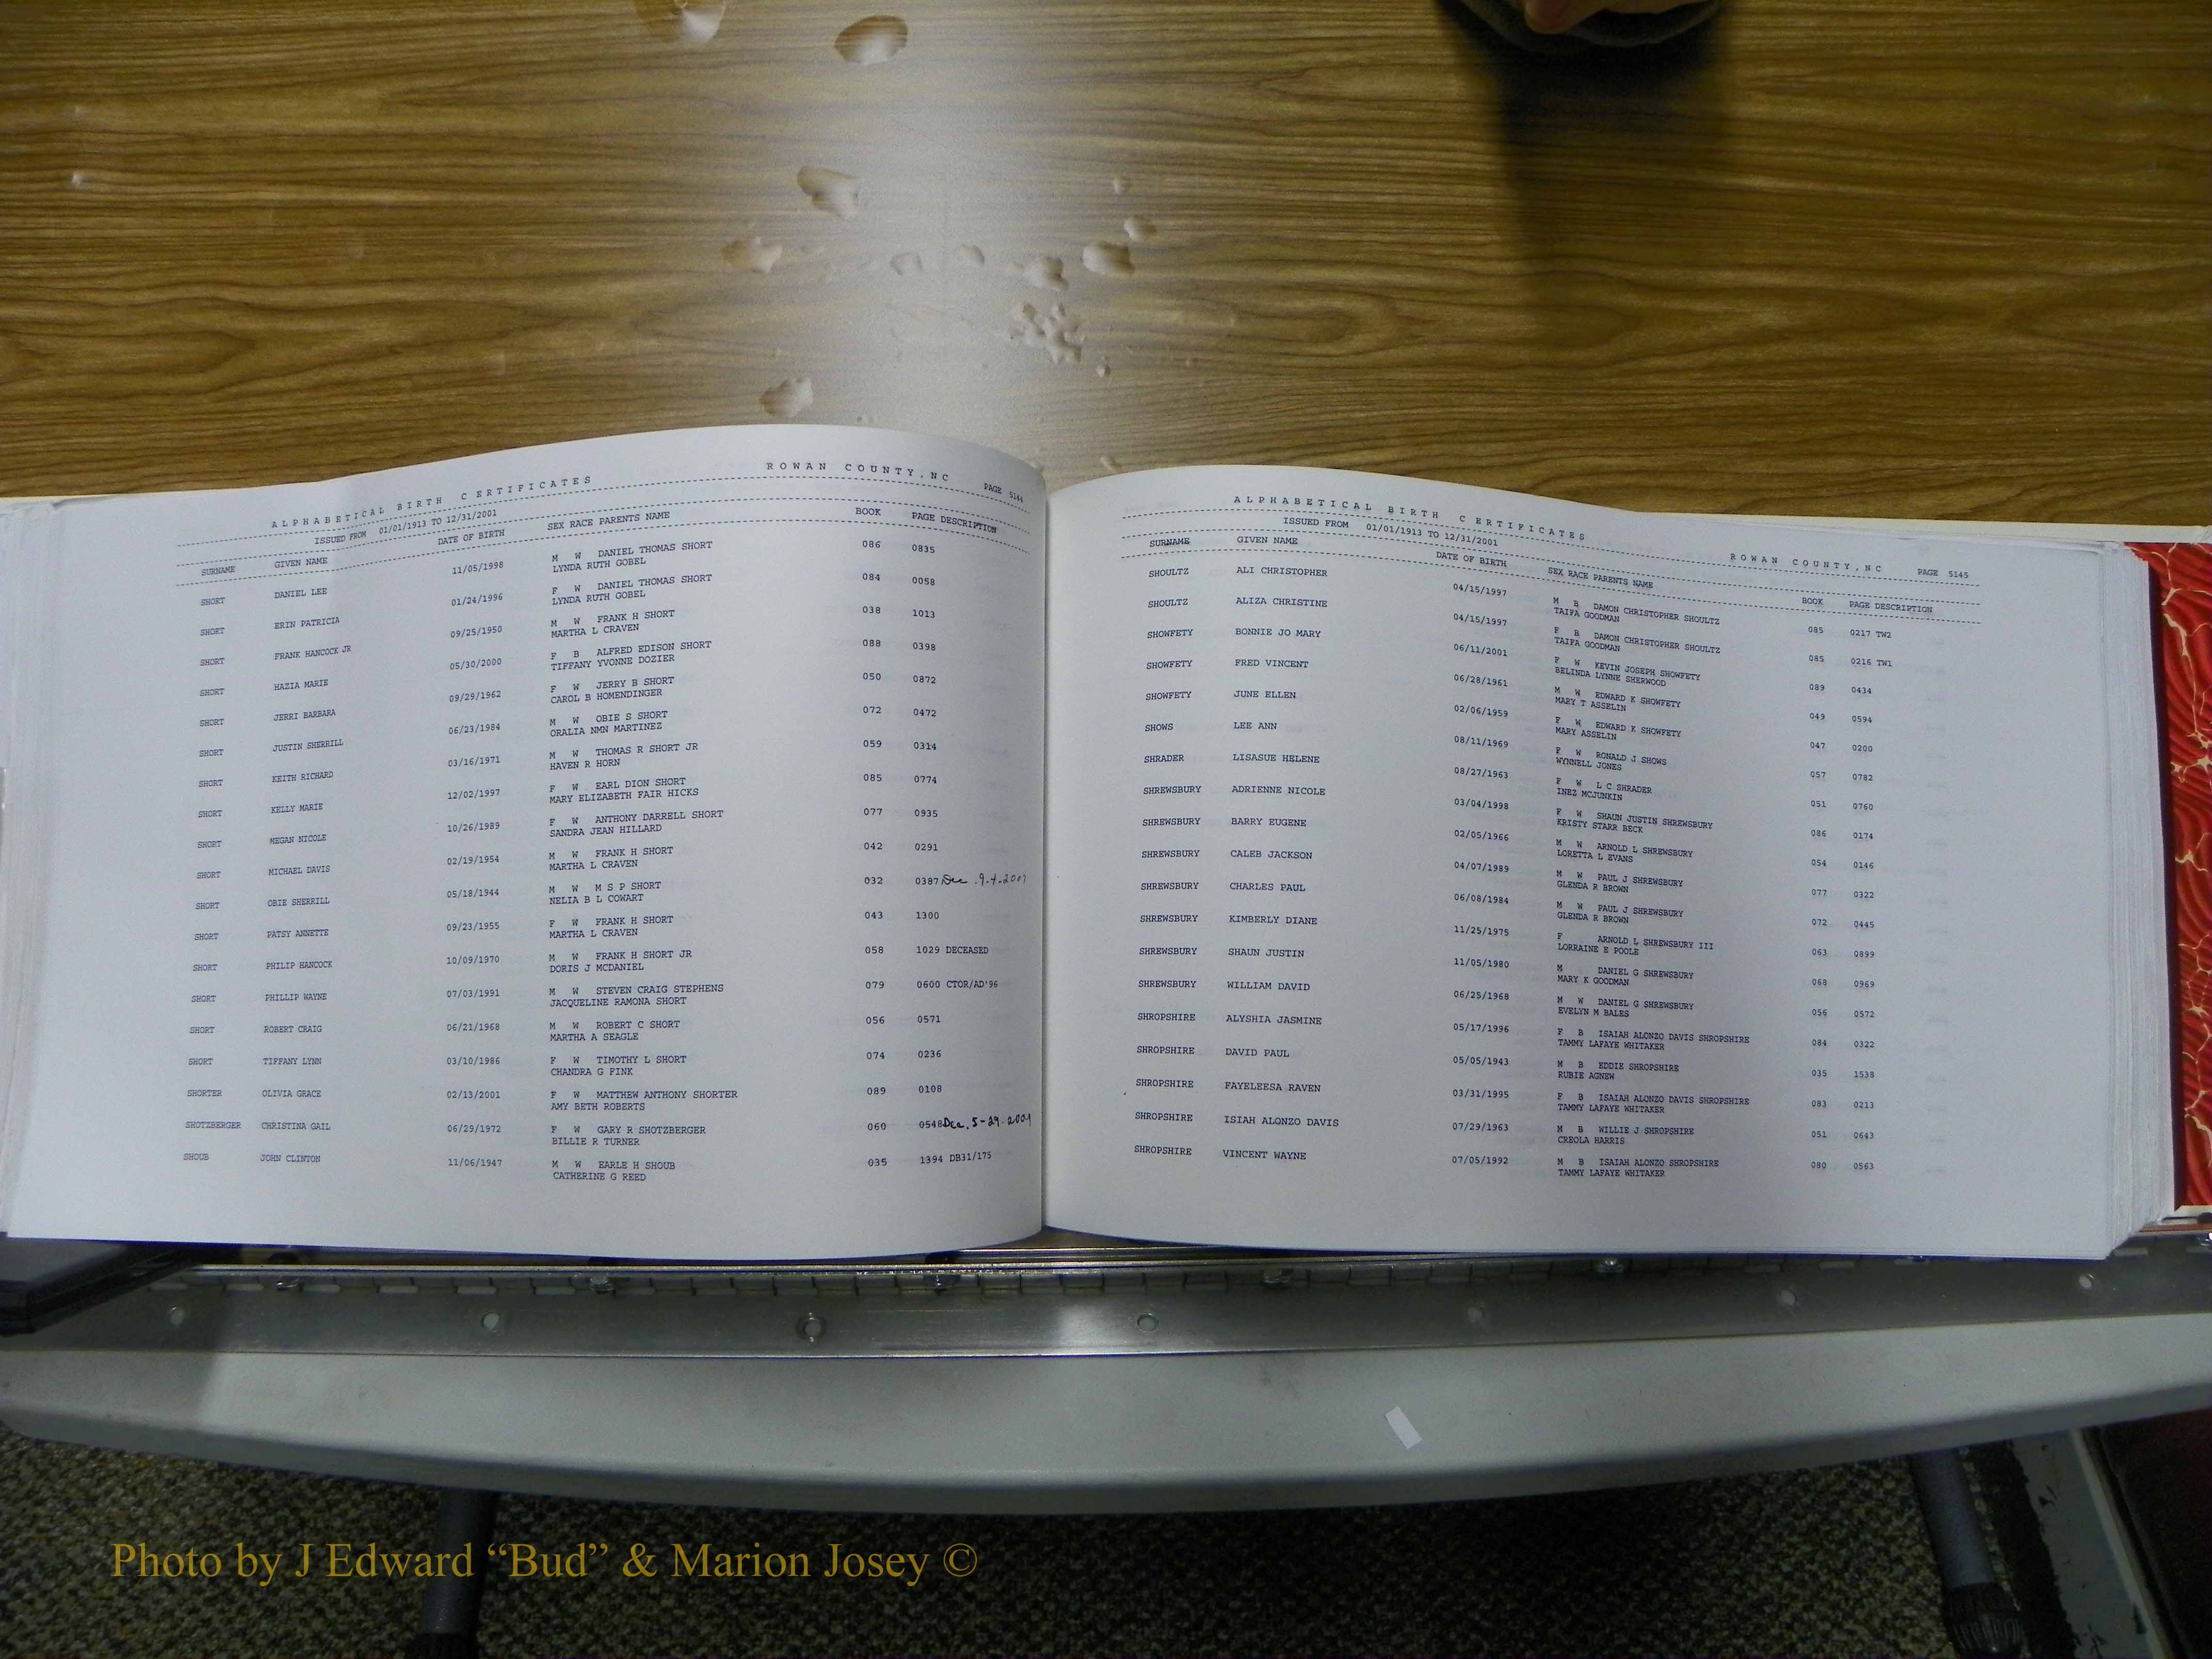 ALPHABETICAL BIRTH CERTIFICATES ROWAN COUNTY, NC PAGE 5144
ISSUED FROM 01/01/1913 TO 12/31/2001
SURNAME GIVEN NAME DATE OF BIRTH SEX RACE PARENTS NAME BOOK PAGE DESCRIPTION
SHORT DANIEL LEE 11/05/1998 M W DANIEL THOMAS SHORT 086 0835
LYNDA RUTH GOBEL
SHORT ERIN PATRICIA 01/24/1996 F W DANIEL THOMAS SHORT 084 0058
LYNDA RUTH GOBEL
SHORT FRANK HANCOCK JR 09/25/1950 M W FRANK H SHORT 038 1013
MARTHA L CRAVEN
SHORT HAZIA MARIE 05/30/2000 F B ALFRED EDISON SHORT 088 0398
TIFFANY YVONNE DOZIER
SHORT JERRI BARBARA 09/29/1962 F W JERRY B SHORT 050 0872
CAROL B HOMENDINGER
SHORT JUSTIN SHERRILL 06/23/1984 M W OBIE S SHORT 072 0472
ORALIA NMN MARTINEZ
SHORT KEITH RICHARD 03/16/1971 M W THOMAS R SHORT JR 059 0314
HAVEN R HORN
SHORT KELLY MARIE 12/02/1997 F W EARL DION SHORT 085 0774
MARY ELIZABETH FAIR HICKS
SHORT MEGAN NICOLE 10/26/1989 F W ANTHONY DARRELL SHORT 077 0935
SANDRA JEAN HILLARD
SHORT MICHAEL DAVIS 02/19/1954 M W FRANK H SHORT 042 0291
MARTHA L CRAVEN
SHORT OBIE SHERRILL 05/18/1944 M W M S P SHORT 032 0387 Dec. 9-4-2001
NELIA B L COWART
SHORT PATSY ANNETTE 09/23/1955 F W FRANK H SHORT 043 1300
MARTHA L CRAVEN
SHORT PHILIP HANCOCK 10/09/1970 M W FRANK H SHORT JR 058 1029 DECEASED
DORIS J MCDANIEL
SHORT PHILLIP WAYNE 07/03/1991 M W STEVEN CRAIG STEPHENS 079 0600 CTOR/AD'96
JACQUELINE RAMONA SHORT
SHORT ROBERT CRAIG 06/21/1968 M W ROBERT C SHORT 056 0571
MARTHA A SEAGLE
SHORT TIFFANY LYNN 03/10/1986 F W TIMOTHY L SHORT 074 0236
CHANDRA G FINK
SHORTER OLIVIA GRACE 02/13/2001 F W MATTHEW ANTHONY SHORTER 089 0108
AMY BETH ROBERTS
SHOTZBERGER CHRISTINA GAIL 06/29/1972 F W GARY R SHOTZBERGER 060 0548 Dec. 5-29-2001
BILLIE R TURNER
SHOUB JOHN CLINTON 11/06/1947 M W EARLE H SHOUB 035 1394 DB31/175
CATHERINE G REED
ALPHABETICAL BIRTH CERTIFICATES ROWAN COUNTY, NC PAGE 5145
ISSUED FROM 01/01/1913 TO 12/31/2001
SURNAME GIVEN NAME DATE OF BIRTH SEX RACE PARENTS NAME BOOK PAGE DESCRIPTION
SHOULTZ ALI CHRISTOPHER 04/15/1997 M B DAMON CHRISTOPHER SHOULTZ 085 0217 TW2
TAIFA GOODMAN
SHOULTZ ALIZA CHRISTINE 04/15/1997 F B DAMON CHRISTOPHER SHOULTZ 085 0216 TW1
TAIFA GOODMAN
SHOWFETY BONNIE JO MARY 06/11/2001 F W KEVIN JOSEPH SHOWFETY 089 0434
BELINDA LYNNE SHERWOOD
SHOWFETY FRED VINCENT 06/28/1961 M W EDWARD K SHOWFETY 049 0594
MARY T ASSELIN
SHOWFETY JUNE ELLEN 02/06/1959 F W EDWARD K SHOWFETY 047 0200
MARY ASSELIN
SHOWS LEE ANN 08/11/1969 F W RONALD J SHOWS 057 0782
WYNNELL JONES
SHRADER LISASUE HELENE 08/27/1963 F W L C SHRADER 051 0760
INEZ MCJUNKIN
SHREWSBURY ADRIENNE NICOLE 03/04/1998 F W SHAUN JUSTIN SHREWSBURY 086 0174
KRISTY STARR BECK
SHREWSBURY BARRY EUGENE 02/05/1966 M W ARNOLD L SHREWSBURY 054 0146
LORETTA L EVANS
SHREWSBURY CALEB JACKSON 04/07/1989 M W PAUL J SHREWSBURY 077 0322
GLENDA R BROWN
SHREWSBURY CHARLES PAUL 06/08/1984 M W PAUL J SHREWSBURY 072 0445
GLENDA R BROWN
SHREWSBURY KIMBERLY DIANE 11/25/1975 F ARNOLD L SHREWSBURY III 063 0899
LORRAINE E POOLE
SHREWSBURY SHAUN JUSTIN 11/05/1980 M DANIEL G SHREWSBURY 068 0969
MARY K GOODMAN
SHREWSBURY WILLIAM DAVID 06/25/1968 M W DANIEL G SHREWSBURY 056 0572
EVELYN M BALES
SHROPSHIRE ALYSHIA JASMINE 05/17/1996 F B ISAIAH ALONZO DAVIS SHROPSHIRE 084 0322
TAMMY LAFAYE WHITAKER
SHROPSHIRE DAVID PAUL 05/05/1943 M B EDDIE SHROPSHIRE 035 1538
RUBIE AGNEW
SHROPSHIRE FAYELEESA RAVEN 03/31/1995 F B ISAIAH ALONZO DAVIS SHROPSHIRE 083 0213
TAMMY LAFAYE WHITAKER
SHROPSHIRE ISIAH ALONZO DAVIS 07/29/1963 M B WILLIE J SHROPSHIRE 051 0643
CREOLA HARRIS
SHROPSHIRE VINCENT WAYNE 07/05/1992 M B ISAIAH ALONZO SHROPSHIRE 080 0563
TAMMY LAFAYE WHITAKER
Photo by J Edward “Bud” & Marion Josey ©